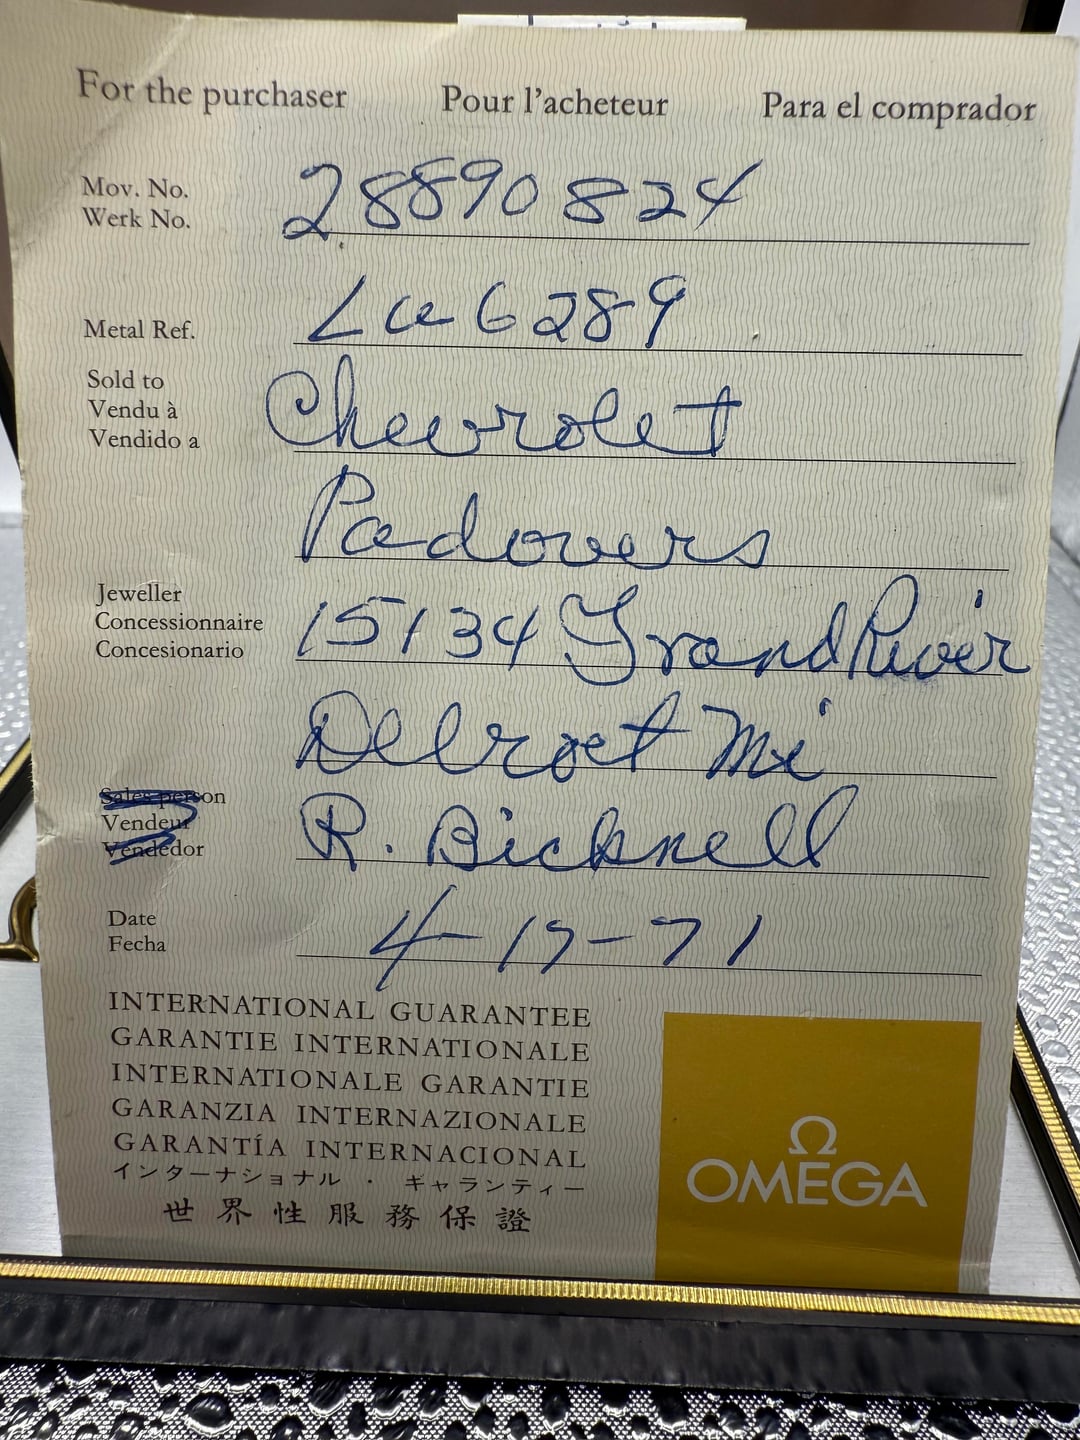 For the purchaser Pour l'acheteur Para el comprador
Mov. No. 28890824
Werk No.
Metal Ref. La 6289
Sold to Chevrolet
Vendu à
Vendido a
Padovers
Jeweller 15134 Grand River
Concessionnaire
Concesionario
Detroet Mi
Sales person R. Bicknell
Vendeur
Vendedor
Date 4-19-71
Fecha
INTERNATIONAL GUARANTEE
GARANTIE INTERNATIONALE
INTERNATIONALE GARANTIE
GARANZIA INTERNAZIONALE
GARANTÍA INTERNACIONAL
インターナショナル・ギャランティー
世界性服務保證
Ω
OMEGA